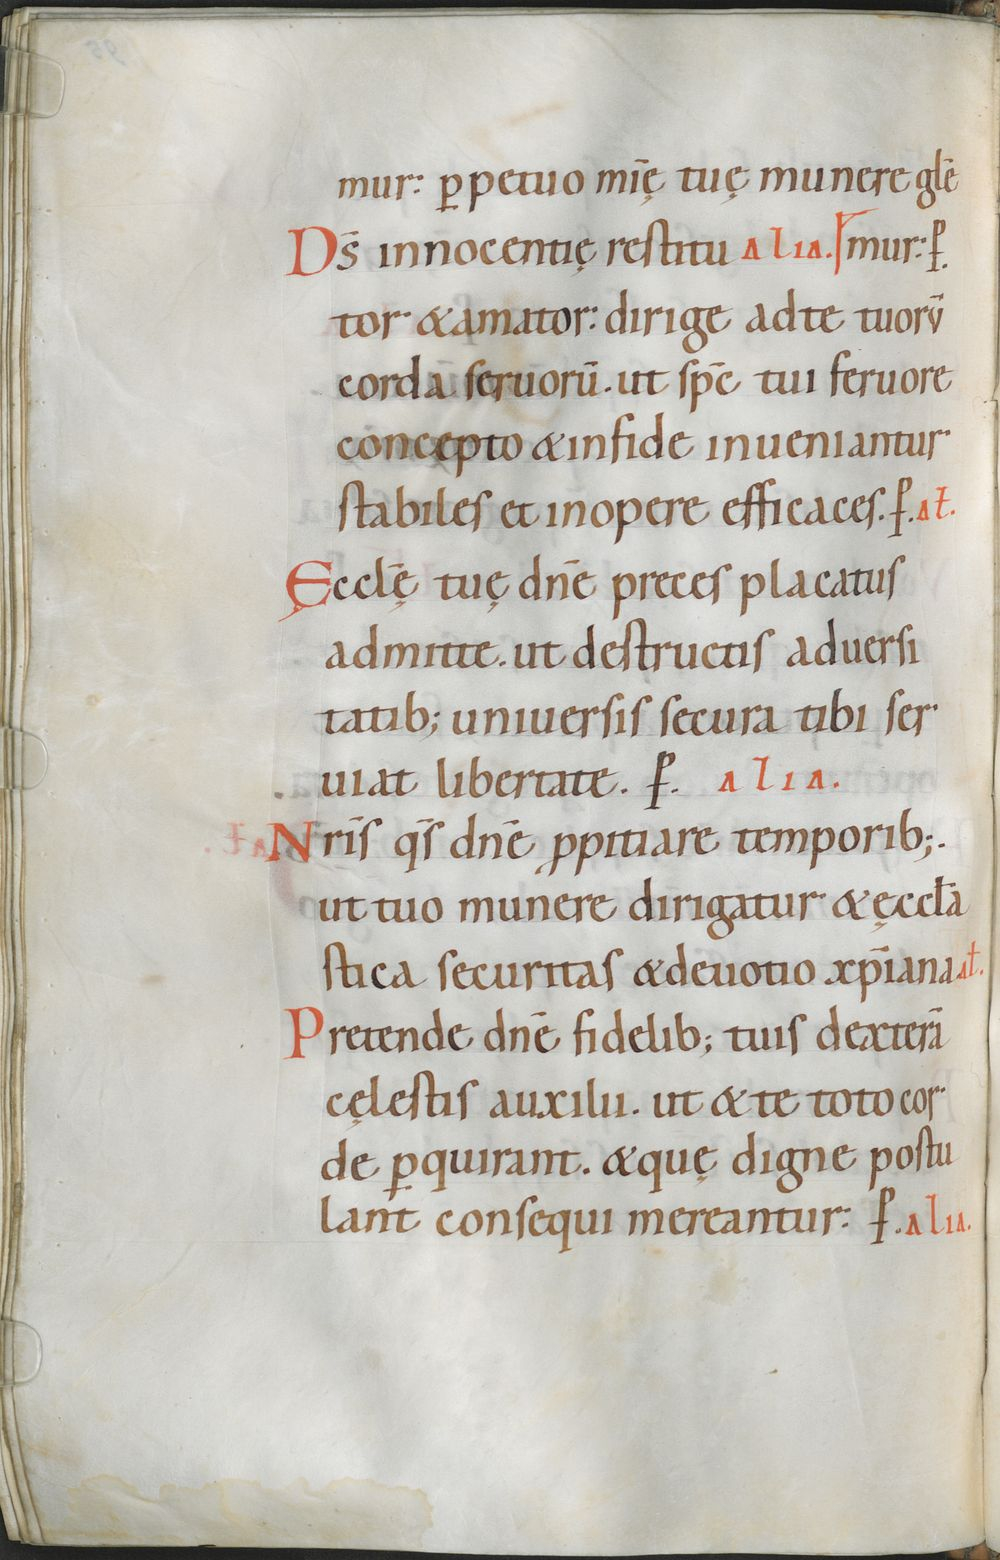 mur: ꝑpetuo mi̅ę tuę munere gle̅
Ds̅ innocentię restitu alia. mur: ꝑ.
tor &amator: dirige adte tuoru̅
corda seruoru̅. ut sp̅c tui feruore
concepto &infide inueniantur
stabiles et inopere efficaces. ꝑ. aƚ.
Eccl̅ę tuę dn̅e preces placatus
admitte. ut destructis aduersi
tatib; uniuersis secura tibi ser
uiat libertate. ꝑ. alia.
Nri̅s qs̅ dn̅e ꝓpitiare temporib;.
ut tuo munere dirigatur &ęccƚa
stica securitas &deuotio xp̅iana aƚ.
Pretende dn̅e fidelib; tuis dextera̅
cęlestis auxilii. ut &te toto cor
de ꝑquirant. &quę digne postu
lant consequi mereantur: ꝑ. alia.